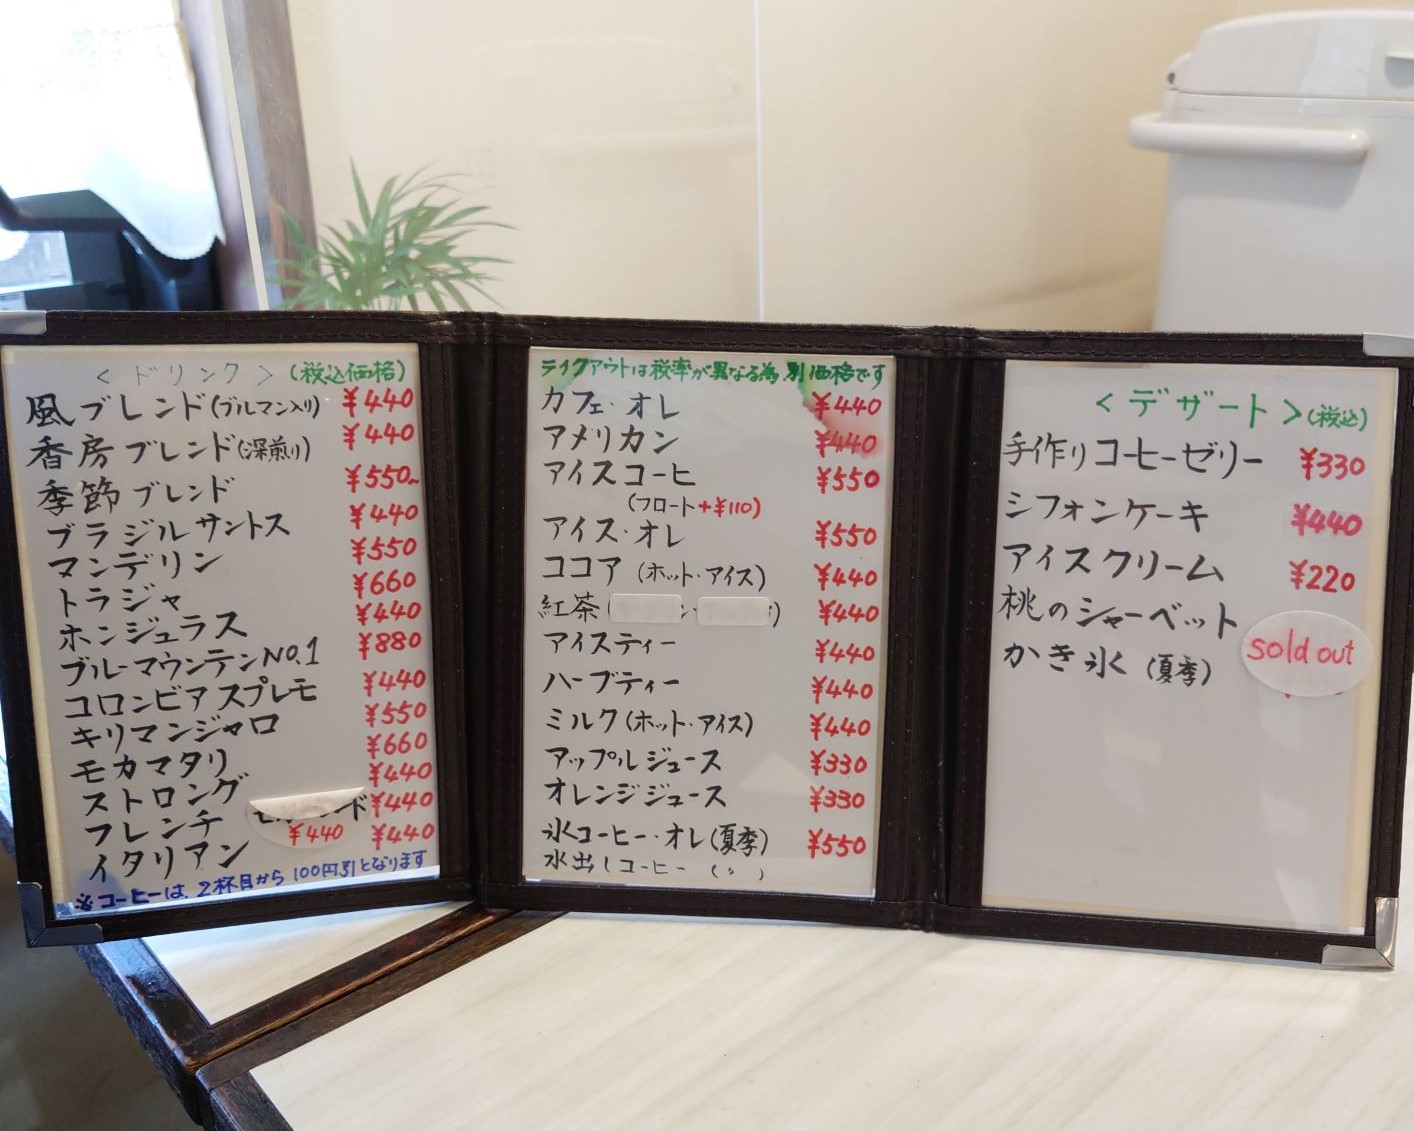 <ドリンク>(税込価格)
風ブレンド(ブルマン入り) ¥440
香房ブレンド(深煎り) ¥440
季節ブレンド ¥550~
ブラジルサントス ¥440
マンデリン ¥550
トラジャ ¥660
ホンジュラス ¥440
ブルーマウンテンNO.1 ¥880
コロンビアスプレモ ¥440
キリマンジャロ ¥550
モカマタリ ¥660
ストロング ¥440
フレンチ ¥440
¥440
イタリアン ¥440
※コーヒーは、2杯目から100円引となります
テイクアウトは税率が異なる為別価格です
カフェ・オレ ¥440
アメリカン ¥440
アイスコーヒ ¥550
(フロート+¥110)
アイス・オレ ¥550
ココア(ホット・アイス) ¥440
紅茶 ¥440
アイスティー ¥440
ハーブティー ¥440
ミルク(ホット・アイス) ¥440
アップルジュース ¥330
オレンジジュース ¥330
氷コーヒー・オレ(夏季) ¥550
水出しコーヒー(〃)
<デザート>(税込)
手作りコーヒーゼリー ¥330
シフォンケーキ ¥440
アイスクリーム ¥220
桃のシャーベット
かき氷(夏季) sold out